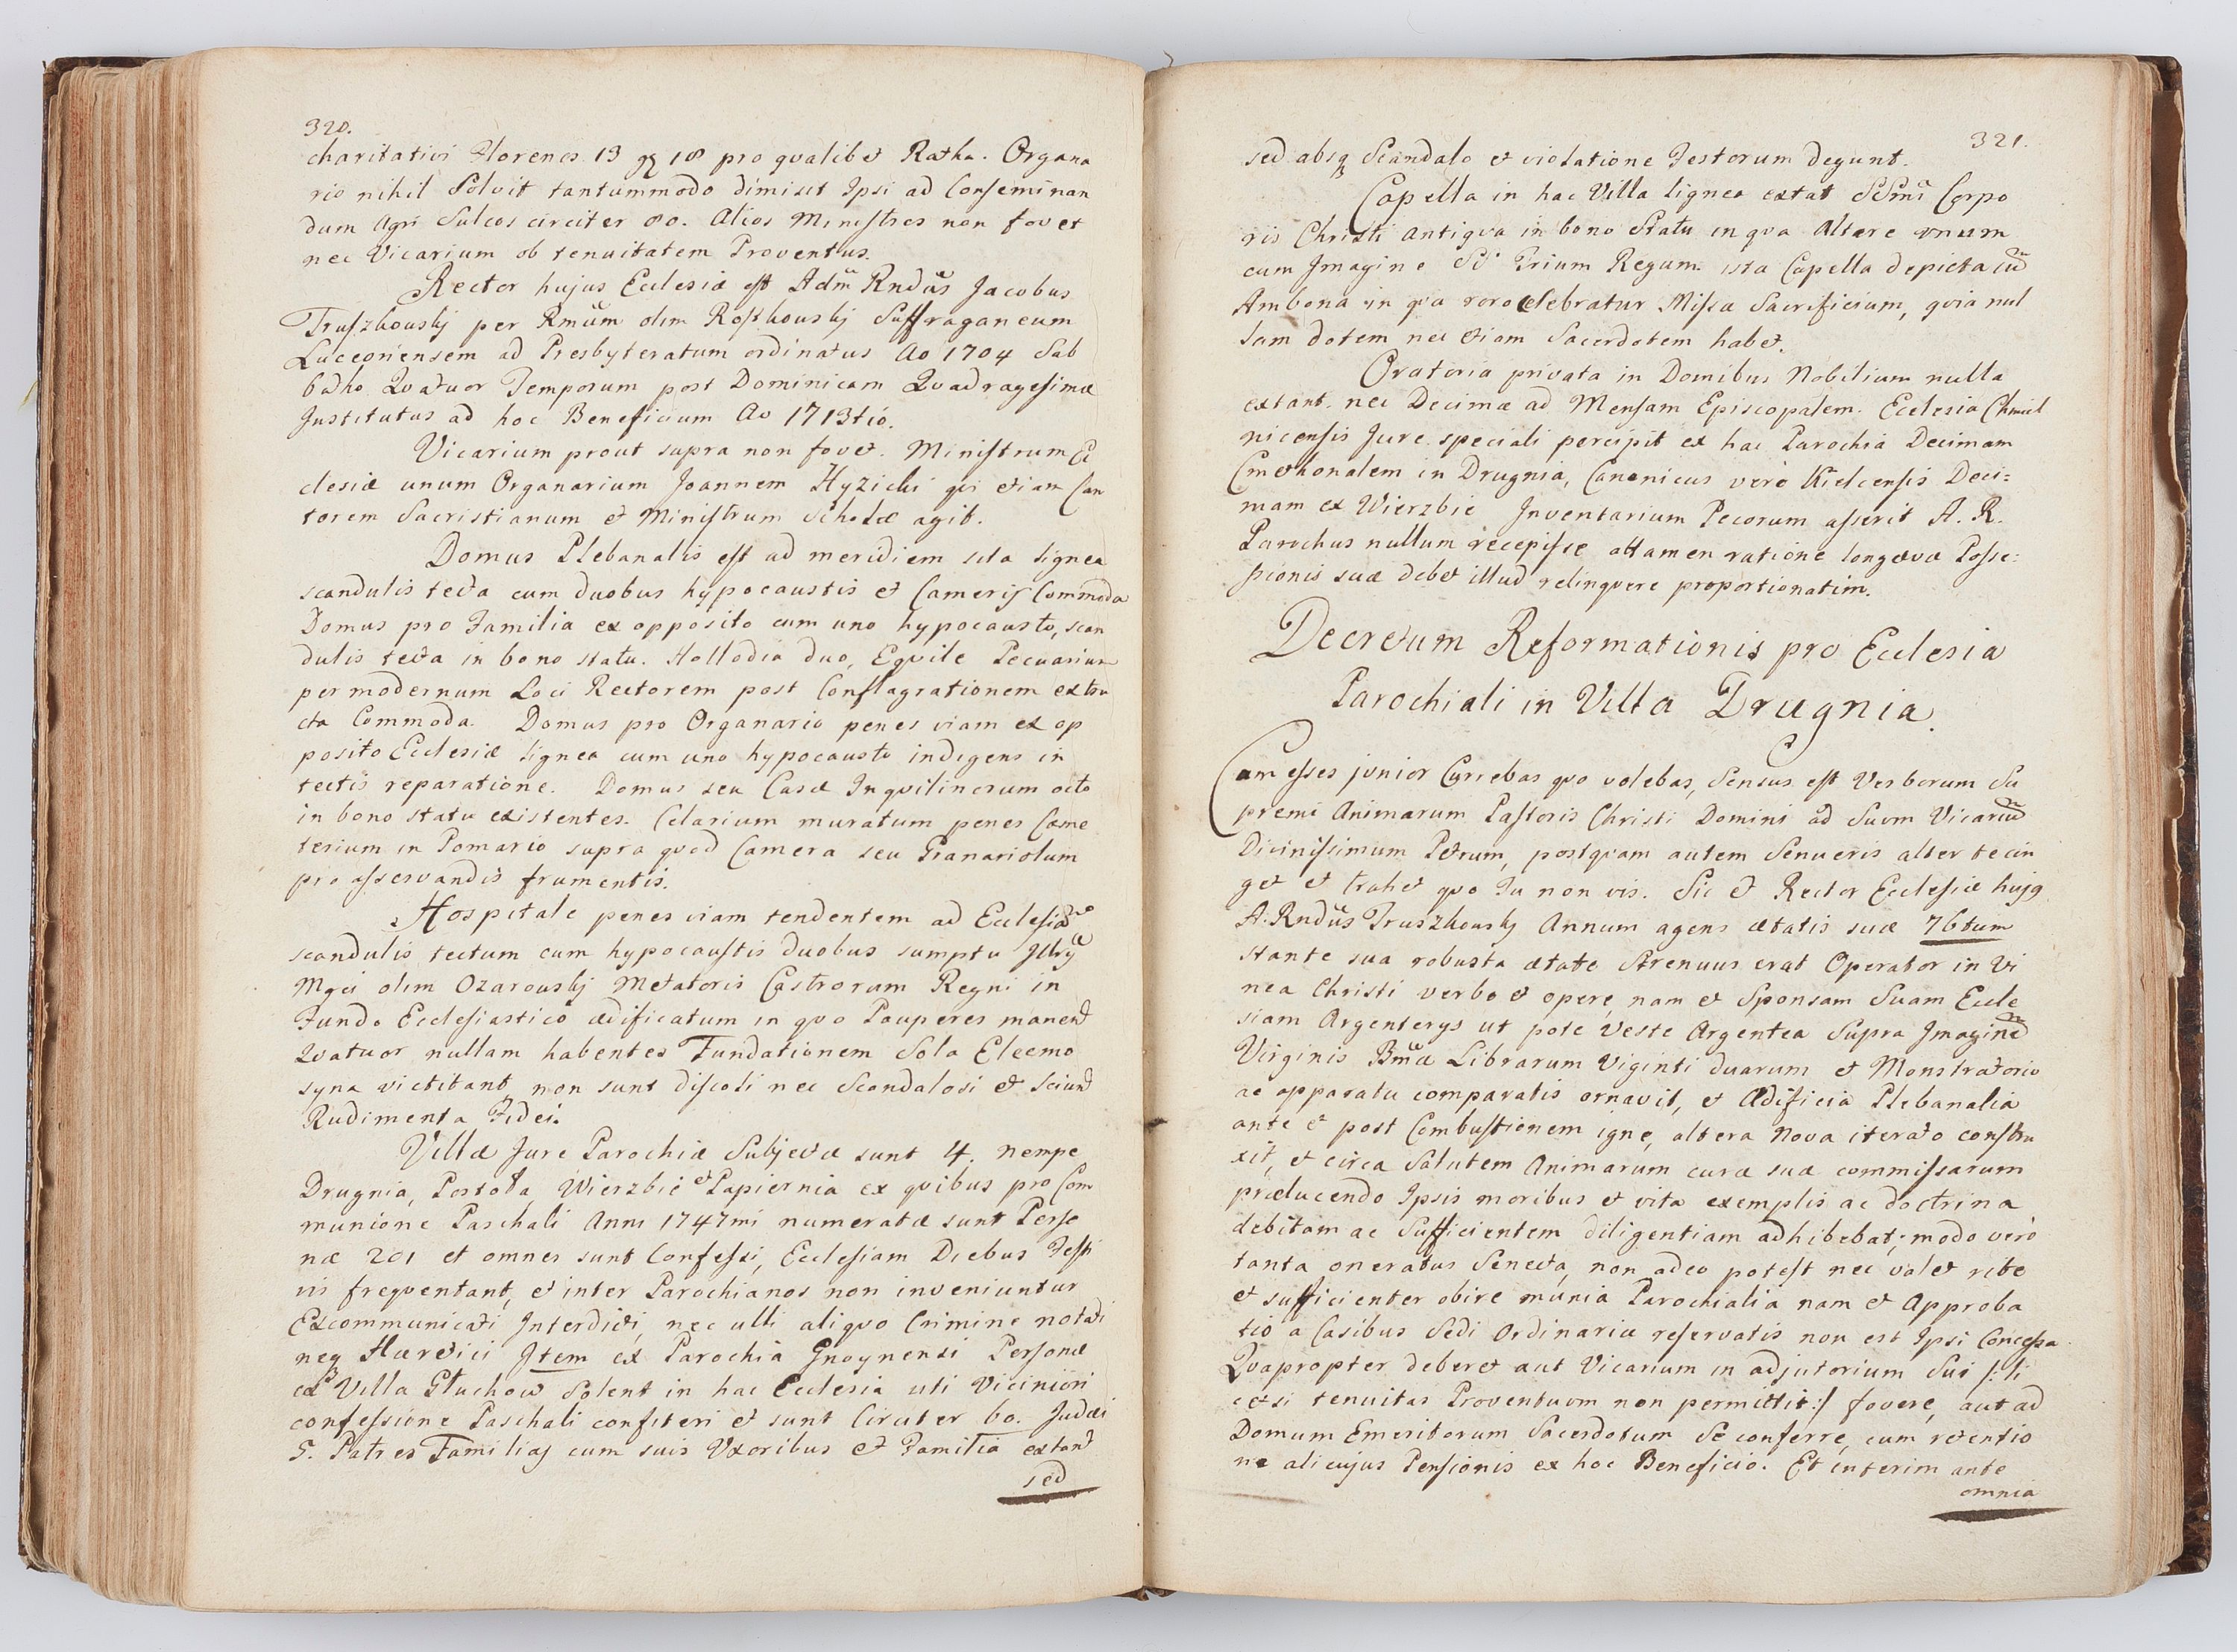 320.
charitativi Florenos 13 gz 18 pro qvalibet Ratha. Organa
rio nihil Solvit tantummodo dimisit Ipsi ad Conseminan
dum Agri Sulcos circiter 80. Alios Ministros non fovet
nec Vicarium ob tenuitatem Proventus.
Rector hujus Ecclesiæ est Adm Rndus Jacobus
Truszkouskj per Rmum olim Rostkouskj Suffraganeum
Luceoriensem ad Presbyteratum ordinatus Ao 1704 Sab
batho Qvatuor Temporum post Dominicam Qvadragesimæ
Institutus ad hoc Beneficium Ao 1713tio.
Vicarium prout supra non fovet. Ministrum Ec
clesiæ unum Organarium Joannem Hyzicki qvi etiam Can
torem Sacristianum et Ministrum Scholæ agit.
Domus Plebanalis est ad meridiem sita lignea
scandulis tecta cum duobus hypocaustis et Cameris Commoda
Domus pro Familia ex opposito cum uno hypocausto, scan
dulis tecta in bono statu. Hollodia duo, Eqvile Pecuarium
per modernum Loci Rectorem post Conflagrationem extru
cta Commoda. Domus pro Organario penes viam ex op
posito Ecclesiæ lignea cum uno hypocausto indigens in
tectis reparatione. Domus seu Casæ Inqvilinorum octo
in bono statu existentes. Celarium muratum penes Cæme
terium in Pomario supra qvod Camera seu Granariolum
pro asservandis frumentis.
Hospitale penes viam tendentem ad Ecclesiã
scandulis tectum cum hypocaustis duobus sumptu
Mgci olim Ozarouskj Metatoris Castrorum Regni in
Fundo Ecclesiastico ædificatum in qvo Pauperes manent
Qvatuor nullam habentes Fundationem Sola Eleemo
syna victitant, non sunt discoli nec Scandalosi et Sciunt
Rudimenta Fidei.
Villæ Jure Parochiæ Subjectæ sunt 4. nempe
Drugnia, Postota, Wierzbie et Papiernia ex qvibus pro Com
munione Paschali Anni 1747mi numeratæ sunt Perso
næ 201 et omnes sunt Confessi, Ecclesiam Diebus Festi
vis freqventant, et inter Parochianos non inveniuntur
Excommunicati Interdicti, nec ulli aliqvo Crimine notati
neq Hæretici Item ex Parochia Gnoynensi Personæ
ex Villa Głuchow Solent in hac Ecclesia uti Viciniori
confessione Paschali confiteri et sunt Circiter 60. Judæi
5. Patres Familias cum suis Uxoribus et Familia extant
sed
321.
sed absq Scandalo et violatione Festorum degunt.
Capella in hac Villa lignea extat SSmi Corpo
ris Christi antiqva in bono Statu in qva Altare unum
cum Imagine SS Trium Regum. ista Capella depicta cũ
Ambona in qva raro celebratur Missæ Sacrificium, qvia nul
lam dotem nec etiam Sacerdotem habet.
Oratoria privata in Domibus Nobilium nulla
extant. nec Decimæ ad Mensam Episcopalem. Ecclesia Chmiel
nicensis Jure speciali percipit ex hac Parochia Decimam
Cmethonalem in Drugnia, Canonicus verò Kielcensis Deci=
mam ex Wierzbie Inventarium Pecorum asserit A. R.
Parochus nullum recepisse attamen ratione longævæ Posse:
ssionis suæ debet illud relinqvere proportionatim.
Decretum Reformationis pro Ecclesia
Parochiali in Villa Drugnia.
Cum esses junior Cingebas qvo volebas, Sensus est Verborum Su
premi Animarum Pastoris Christi Domini ad Suum Vicariũ
Divinissimum Petrum, postqvam autem Senueris alter te cin
get et trahet qvo Tu non vis. Sic et Rector Ecclesiæ hujq
A. Rndus Truszkousky Annum agens ætatis suæ 76tum
stante sua robusta ætate Strenuus erat Operator in Vi
nea Christi verbo et opere, nam et Sponsam Suam Eccle
siam Argenterys ut pote Veste Argentea Supra Imaginẽ
Virginis Bmæ Librarum Viginti duarum et Monstratorio
ac apparatu comparatis ornavit, et Ædificia Plebanalia
ante et post Combustionem igne, altera Nova iterato constru
xit, et circa Salutem Animarum curæ suæ commissarum
prælucendo Ipsis moribus et vita exemplis ac doctrina
debitam ac Sufficientem diligentiam adhibebat; modo verò
tanta oneratus Senecta, non adeo potest nec valet rite
et sufficienter obire munia Parochialia nam et Approba
tio a Casibus Sedi Ordinariæ reservatis non est Ipsi Concessa
Qvapropter deberet aut Vicarium in adjutorium Sui /: li
cet si tenuitas Proventuum non permittit :/ fovere, aut ad
Domum Emeritorum Sacerdotum Se conferre, cum retentio
ne alicujus Pensionis ex hoc Beneficio. Et interim ante
omnia